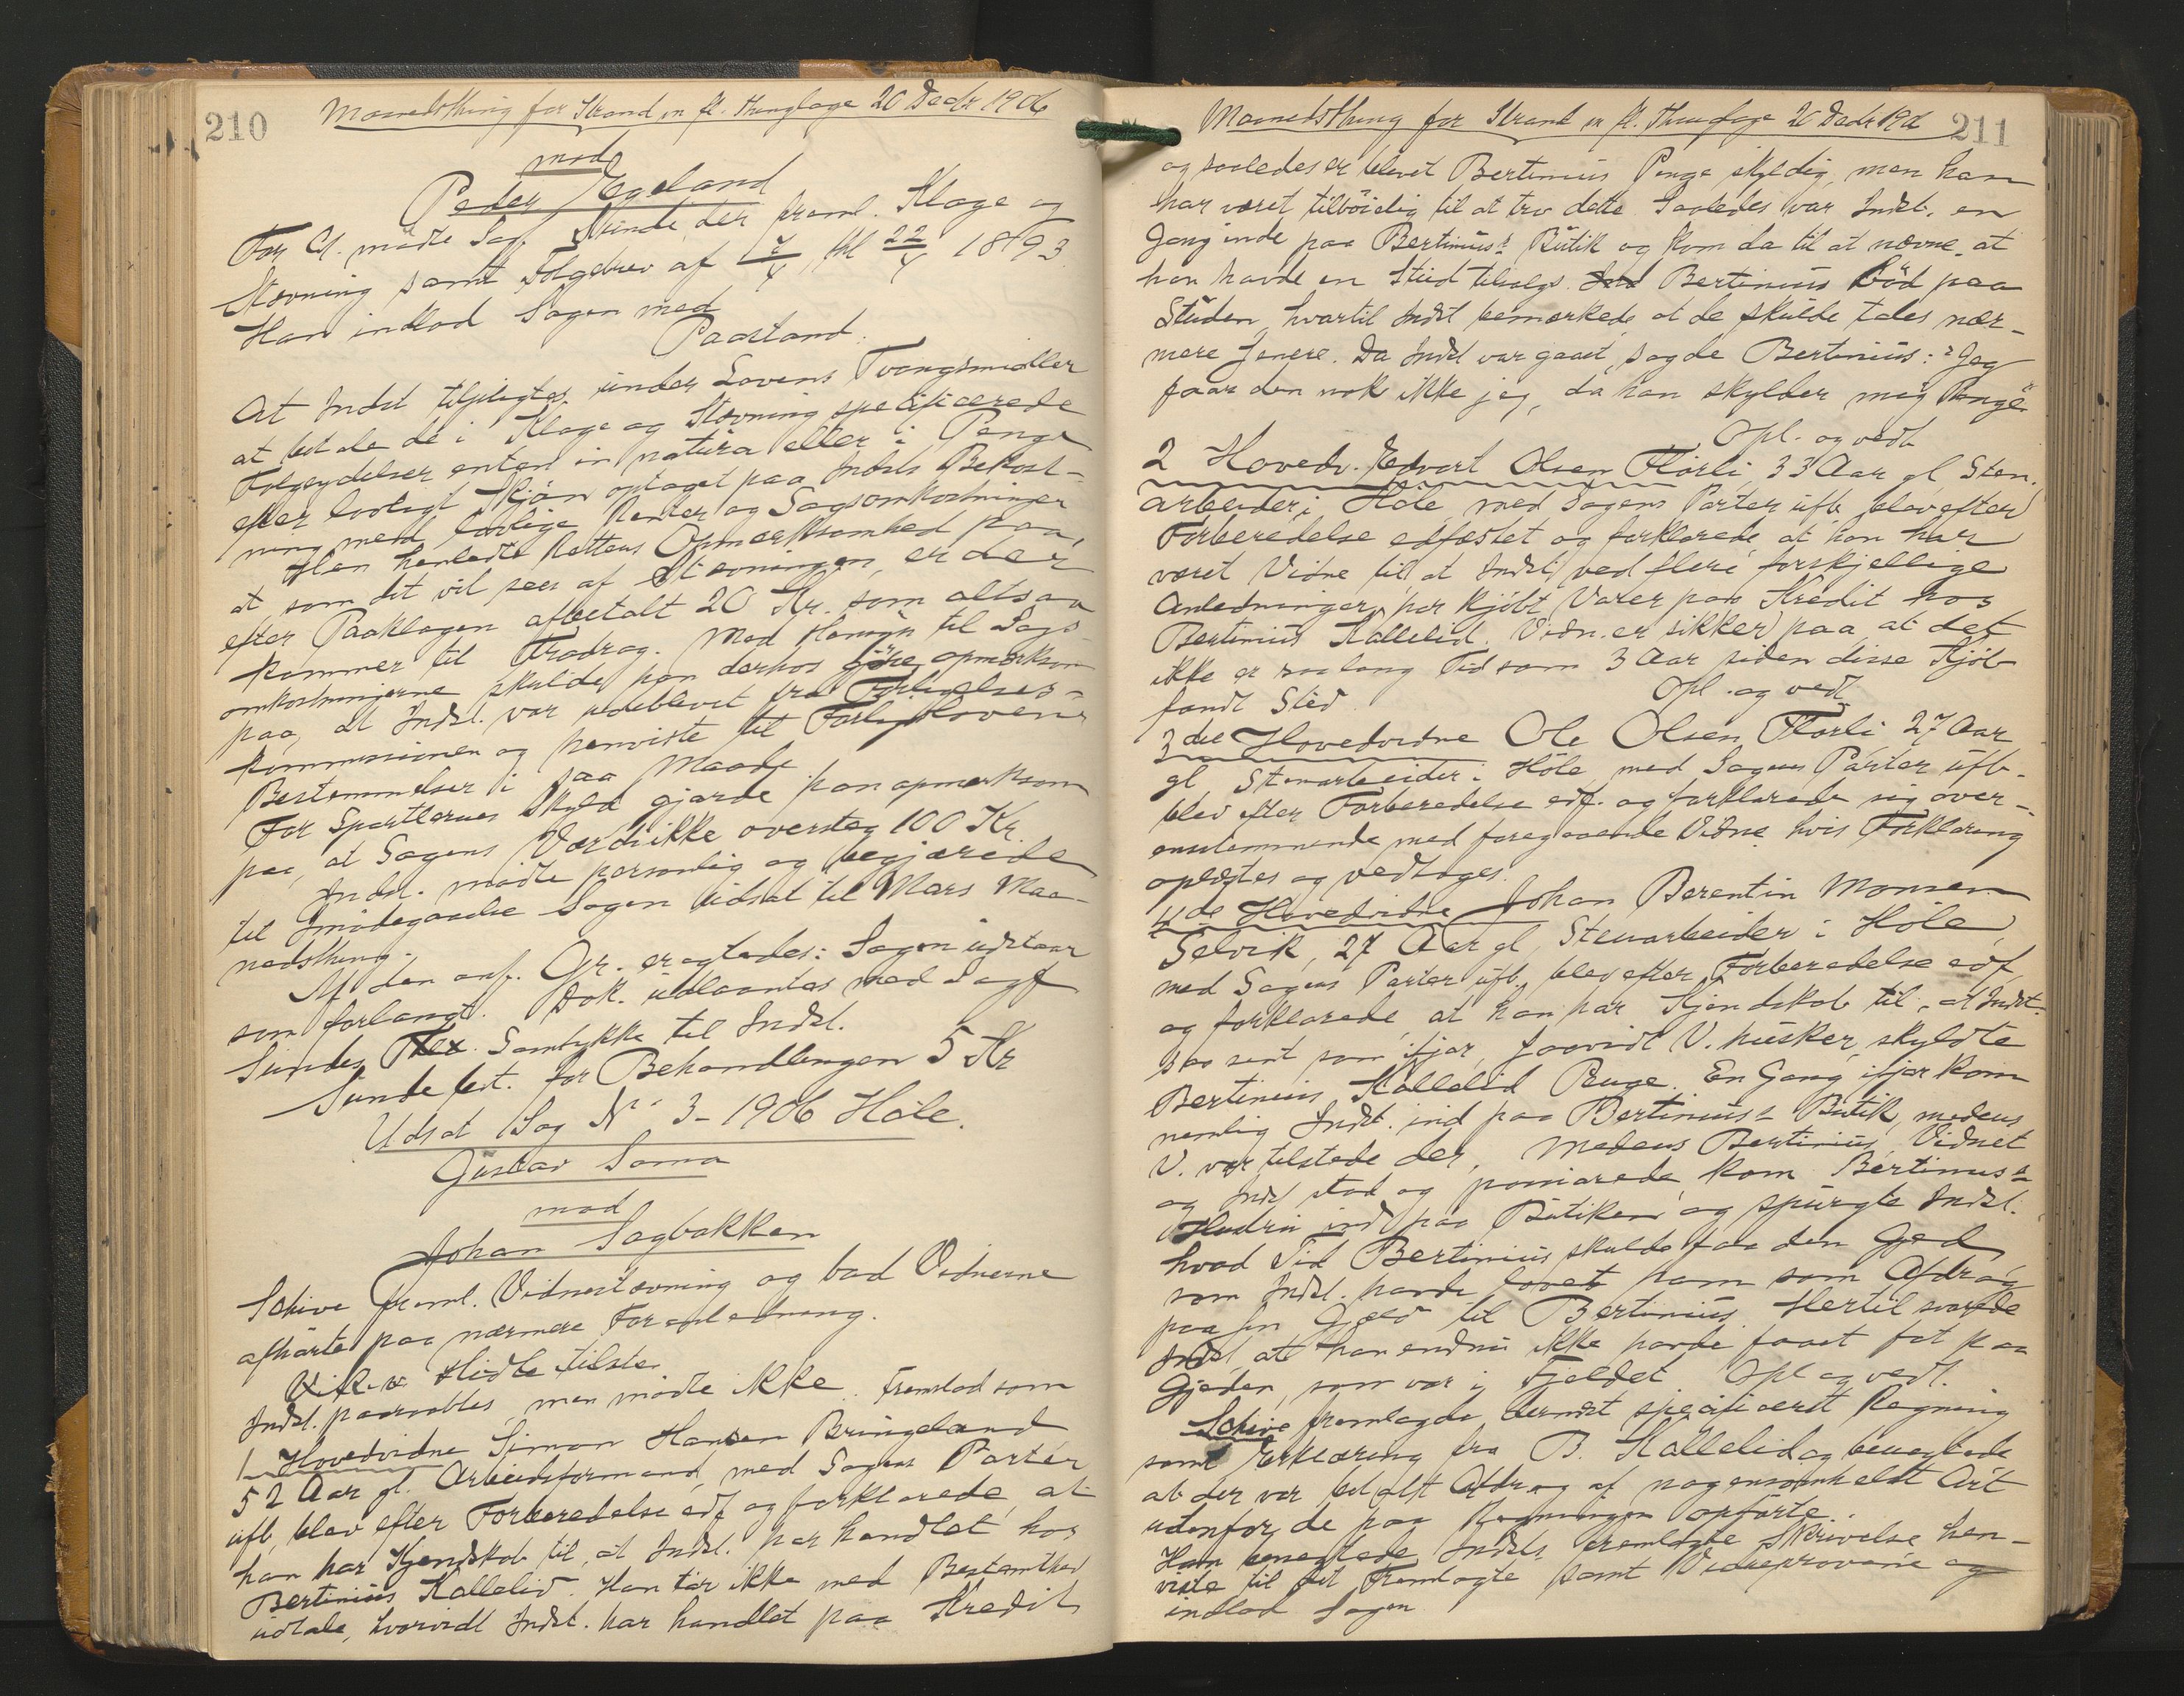 210
Maanedsthing for Strand m fl. thinglage 20 Decbr. 1906
mod
Peder Egeland
For Cl. mødte Sagf. Sunde, der freml. Klage og
Stævning samt Følgebrev af 17/4, thl 22/4 1893.
Han indlod Sagen med
Paastand:
At Indst tilpligtes under Lovens Tvangsmidler
at betale de i Klage og Stævning specificerede
Følgeydelser enten in natura eller i Penge
efter lovligt Skjøn optaget paa Indsts Bekost-
ning med lovlige Renter og Sagsomkostninger
Han henledte Rettens Opmærksomhed paa,
at som det vil sees af Stævningen, er der
efter Paaklagen afbetalt 20 Kr. som altsaa
kommer til Fradrag. Med Hensyn til Sags-
omkostningerne skulde han derhos gjøre opmærksom
paa, at Indst. var udeblevet fra Forligelses-
kommissionen og henviste til Forligslovens
Bestemmelser i saa Maade
For Sportlernes Skyld gjorde han opmærksom
paa, at Sagens Værdi ikke oversteg 100 Kr.
Indst. mødte personlig og begjærede
til Imødegaaelse Sagen udsat til Mars Maa-
nedsthing.
Af den anf. Gr. eragtedes: Sagen udstaar
som forlangt. Dok. udlaantes med Sagf
Sundes Samtykke til Indst.
Sunde ber. for Behandlingen 5 Kr
Udsat Sag No 3-1906 Høle.
Gustav Soma
mod
Johan Sagbakken
Schive freml. Vidnestævning og bad Vidnerne
afhørte paa nærmere Foranledning.
Indst. paaraabtes, men mødte ikke. Fremstod som
1. Hovedvidne Simon Hansen Bringeland
52 Aar gl. Arbeidsformand, med Sagens Parter
ufb, blev efter Forberedelse edf og forklarede, at
han har Kjendskab til, at Indst. har handlet hos
Bertinius Kallelid. Han tør ikke med Bestemthed
udtale, hvorvidt Indst. har handlet paa Kredit
Maanedsthing for Strand m fl. Thinglage 20 Decbr 1906
211
og saaledes er blevet Bertinius Penge skyldig, men han
har været tilbøielig til at tro dette. Saaledes var Indst. en
Gang inde paa Bertinius's Butik og kom da til at nævne, at
han havde en Stud tilsalgs. Ind Bertinius bød paa
Studen, hvortil Indst bemærkede, at de skulde tales nær-
mere senere. Da Indst var gaaet, sagde Bertinius: "Jeg
faar den nok ikke jeg, da han skylder mig Penge"
Opl. og vedt.
2 Hovedv. Edvart Olsen Flørli, 33 Aar gl Sten-
arbeider i Høle, med Sagens Parter ufb, blev efter
Forberedelse edfæstet og forklarede, at han har
været Vidne til at Indst, ved flere forskjellige
Anledninger, har kjøbt Varer paa Kredit hos
Bertinius Kallelid. Vidn. er sikker paa, at det
ikke er saa lang Tid som 3 Aar siden disse Kjøb
fandt Sted. Opl. og vedt
3die Hovedvidne Ole Olsen Flørli 27 Aar
gl Stenarbeider i Høle med Sagens Parter ufb.
blev efter Forberedelse edf. og forklarede sig over-
ensstemmende med foregaaende Vidne, hvis Forklaring
oplæstes og vedtoges.
4de Hovedvidne Johan Berentin Monsen
Selvik, 27 Aar gl, Stenarbeider i Høle,
med Sagens Parter ufb., blev efter Forberedelse edf
og forklarede, at han har Kjendskab til, at Indst.
saa sent som ifjor, saavidt V. husker, skyldte
Bertinius Kallelid Penge. En Gang ifjor kom
nemlig Indst. ind paa Bertinius's Butik, medens
V. var tilstede der, Medens Bertinius, Vidnet
og Indst stod og passiarede, kom Bertinius's
Hustru ind paa Butiken og spurgte Indst.
hvad Tid Bertinius skulde faa den Gjed,
som Indst. havde lovet ham som Afdrag
paa sin Gjæld til Bertinius. Hertil svarede
Indst, at han endnu ikke havde faaet fat paa
Gjeden, som var i Fjeldet. Opl og vedt.
Schive fremlagde dernæst specificeret Regning
samt Erklæring fra B. Kallelid og benegtede
at der var betalt Afdrag af nogensomhelst Art
udenfor de paa Regningen opførte.
Han benegtede Indsts fremlagte Skrivelse hen-
viste til det Fremlagte samt Vidneprovene og
indlod Sagen